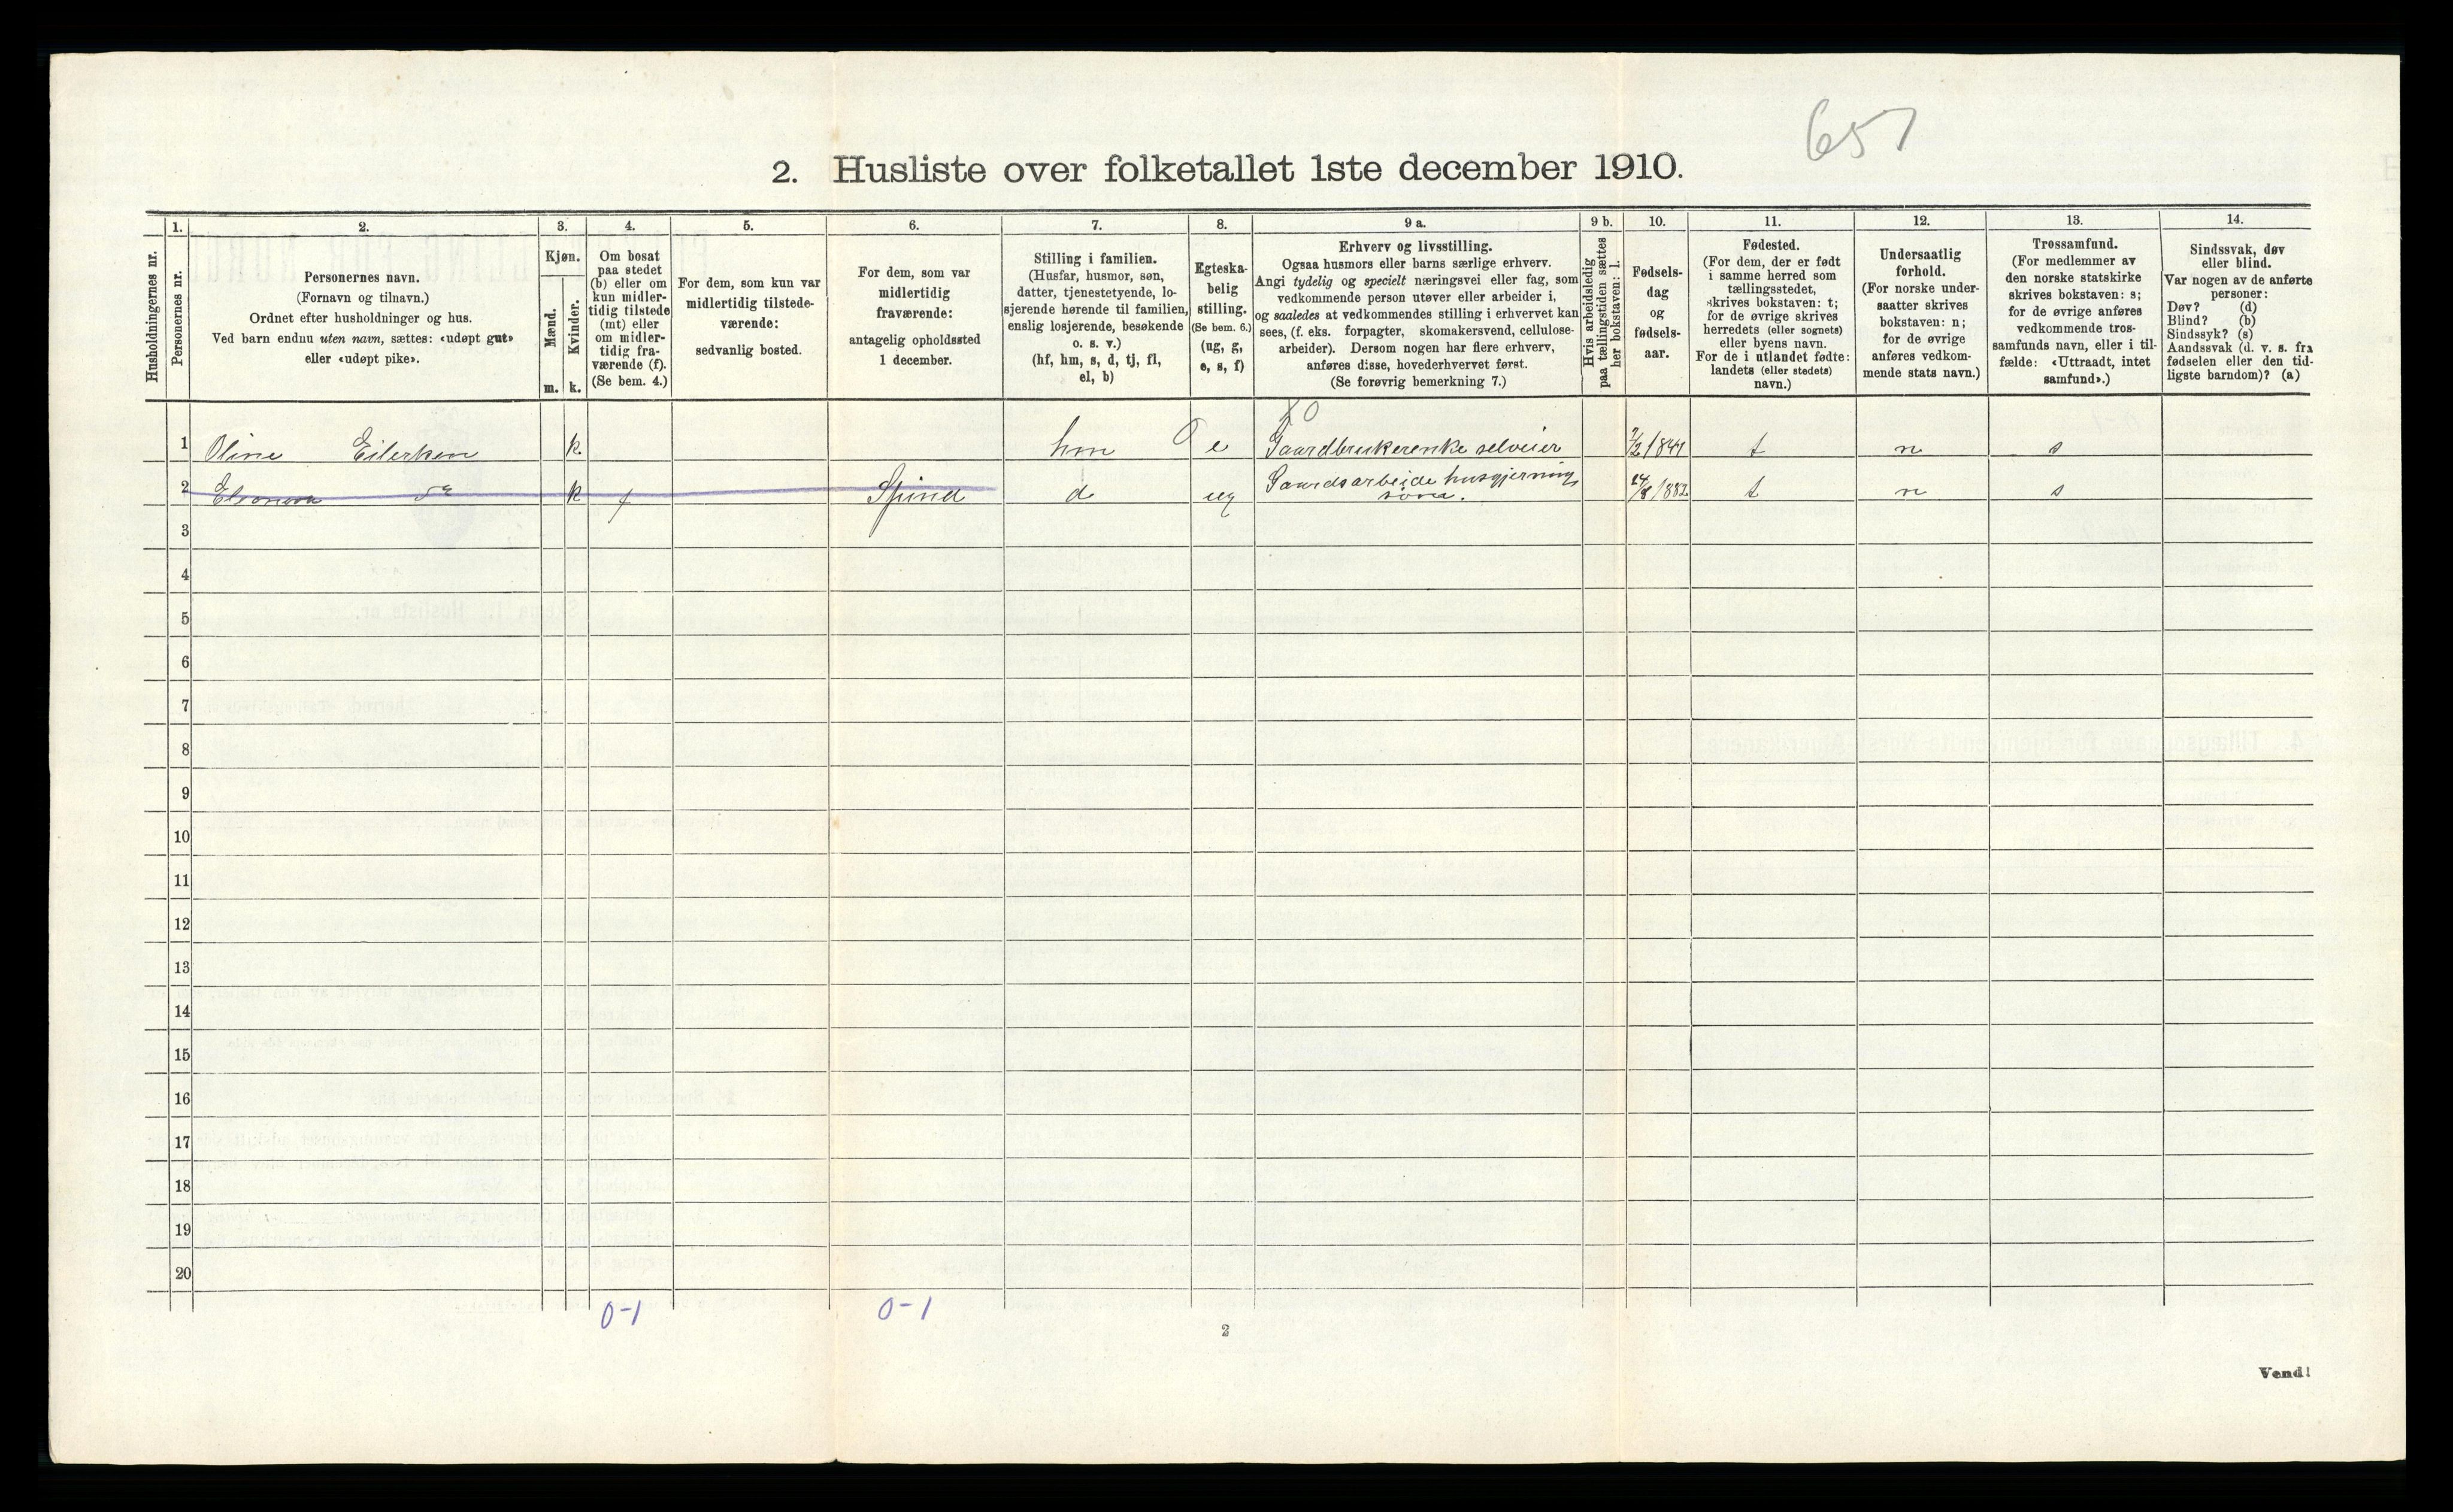 651
2. Husliste over folketallet 1ste december 1910.
Husholdningernes nr.
1.
Personernes nr.
2.
Personernes navn.
(Fornavn og tilnavn.)
Ordnet efter husholdninger og hus.
Ved barn endnu uten navn, sættes: «udøpt gut»
eller «udøpt pike».
3.
Kjøn.
Mænd.
m.
Kvinder.
k.
4.
Om bosat
paa stedet
(b) eller om
kun midler-
tidig tilstede
(mt) eller
om midler-
tidig fra-
værende (f).
(Se bem. 4.)
5.
For dem, som kun var
midlertidig tilstede-
værende:
sedvanlig bosted.
6.
For dem, som var
midlertidig
fraværende:
antagelig opholdssted
1 december.
7.
Stilling i familien.
(Husfar, husmor, søn,
datter, tjenestetyende, lo-
sjerende hørende til familien,
enslig losjerende, besøkende
o. s. v.)
(hf, hm, s, d, tj, fl,
el, b)
8.
Egteska-
belig
stilling.
(Se bem. 6.)
(ug, g,
e, s, f)
9 a.
Erhverv og livsstilling.
Ogsaa husmors eller barns særlige erhverv.
Angi tydelig og specielt næringsvei eller fag, som
vedkommende person utøver eller arbeider i,
og saaledes at vedkommendes stilling i erhvervet kan
sees, (f. eks. forpagter, skomakersvend, cellulose-
arbeider). Dersom nogen har flere erhverv,
anføres disse, hovederhvervet først.
(Se forøvrig bemerkning 7.)
9 b.
Hvis arbeidsledig
paa tællingstiden sættes
her bokstaven: l.
10.
Fødsels-
dag
og
fødsels-
aar.
11.
Fødested.
(For dem, der er født
i samme herred som
tællingsstedet,
skrives bokstaven: t;
for de øvrige skrives
herredets (eller sognets)
eller byens navn.
For de i utlandet fødte:
landets (eller stedets)
navn.)
12.
Undersaatlig
forhold.
(For norske under-
saatter skrives
bokstaven: n;
for de øvrige
anføres vedkom-
mende stats navn.)
13.
Trossamfund.
(For medlemmer av
den norske statskirke
skrives bokstaven: s;
for de øvrige anføres
vedkommende tros-
samfunds navn, eller i til-
fælde: «Uttraadt, intet
samfund».)
14.
Sindssvak, døv
eller blind.
Var nogen av de anførte
personer:
Døv? (d)
Blind? (b)
Sindssyk? (s)
Aandssvak (d. v. s. fra
fødselen eller den tid-
ligste barndom)? (a)
1 Oline Eilerksen k hm e Gaardbrukerenke selveier t n s
2 Elconora do k f Spind d ug Gaardsarbeide husgjerning 24/8 1882 t n s
3
4
5
6
7
8
9
10
11
12
13
14
15
16
17
18
19
20
0-1 0-1
2
Vend!